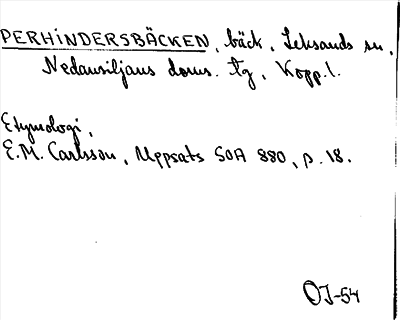 PERHINDERSBÄCKEN, bäck, Leksands sn,
Nedansiljans doms. tg, Kopp. l.
Etymologi,
E.M. Carlsson, Uppsats SOA 880, p. 18.
OJ-54